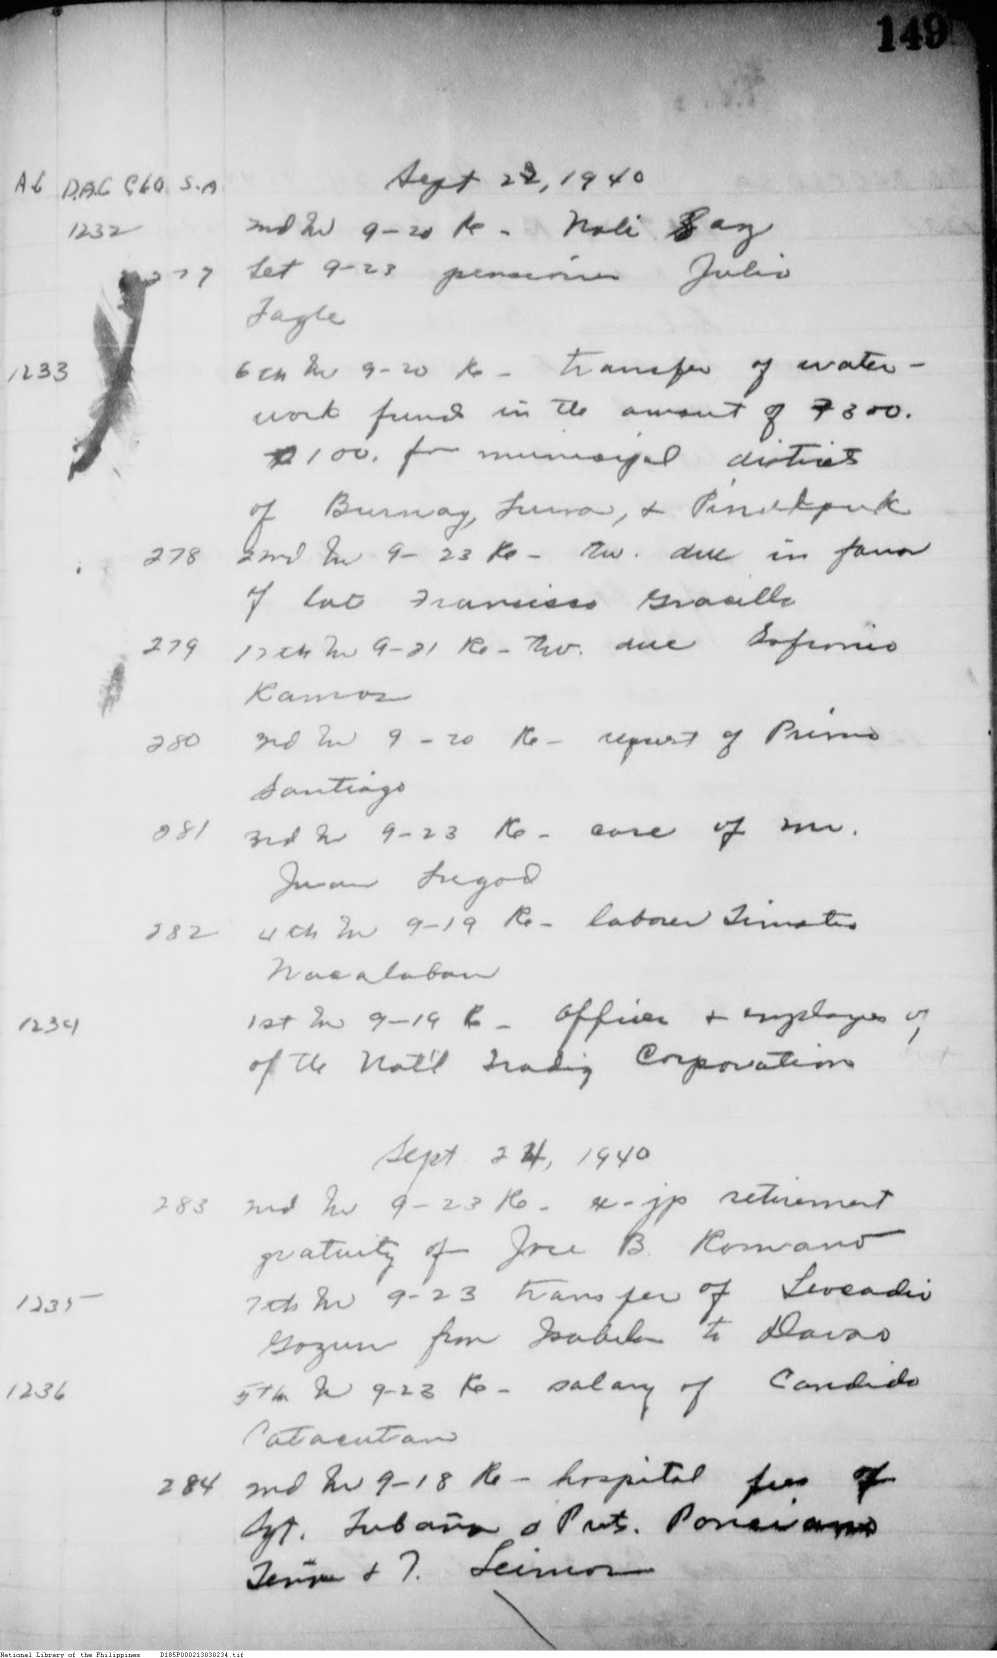 149
A6 D.A.C G60. S.A. Sept 23, 1940
1232 2nd In 9-20 Re - Noli
277 Let 9-23 pensioner Julio
Tagle
1233 6th In 9-20 Re - transfer of water-
work funds in the amount of ₱300.
₱100. for municipal districts
of Burnay, & 
278 2nd In 9-23 Re - Tw. due in favor
of late Francisco Gracilla
279 17th In 9-21 Re - Tw. due Sofronio
Ramos
280 3rd In 9-20 Re - request of Primo
Santiago
281 3rd In 9-23 Re - case of Mr.
Juan Lugod
282 4th In 9-19 Re - laborer Timoteo
Nacalaban
1234 1st In 9-19 Re - Officer & employees of
of the Nat'l Trading Corporation
Sept 24, 1940
283 2nd In 9-23 Re - x-jp retirement
gratuity of Jose B. Romano
1235 7th In 9-23 transfer of Leocadio
Gozun from Isabela to Davao
1236 5th In 9-23 Re - salary of Candido
Catacutan
284 2nd In 9-18 Re - hospital fees of
Sgt. & Pvts. Ponciano
& T.
National Library of the Philippines D185P000213030234.tif